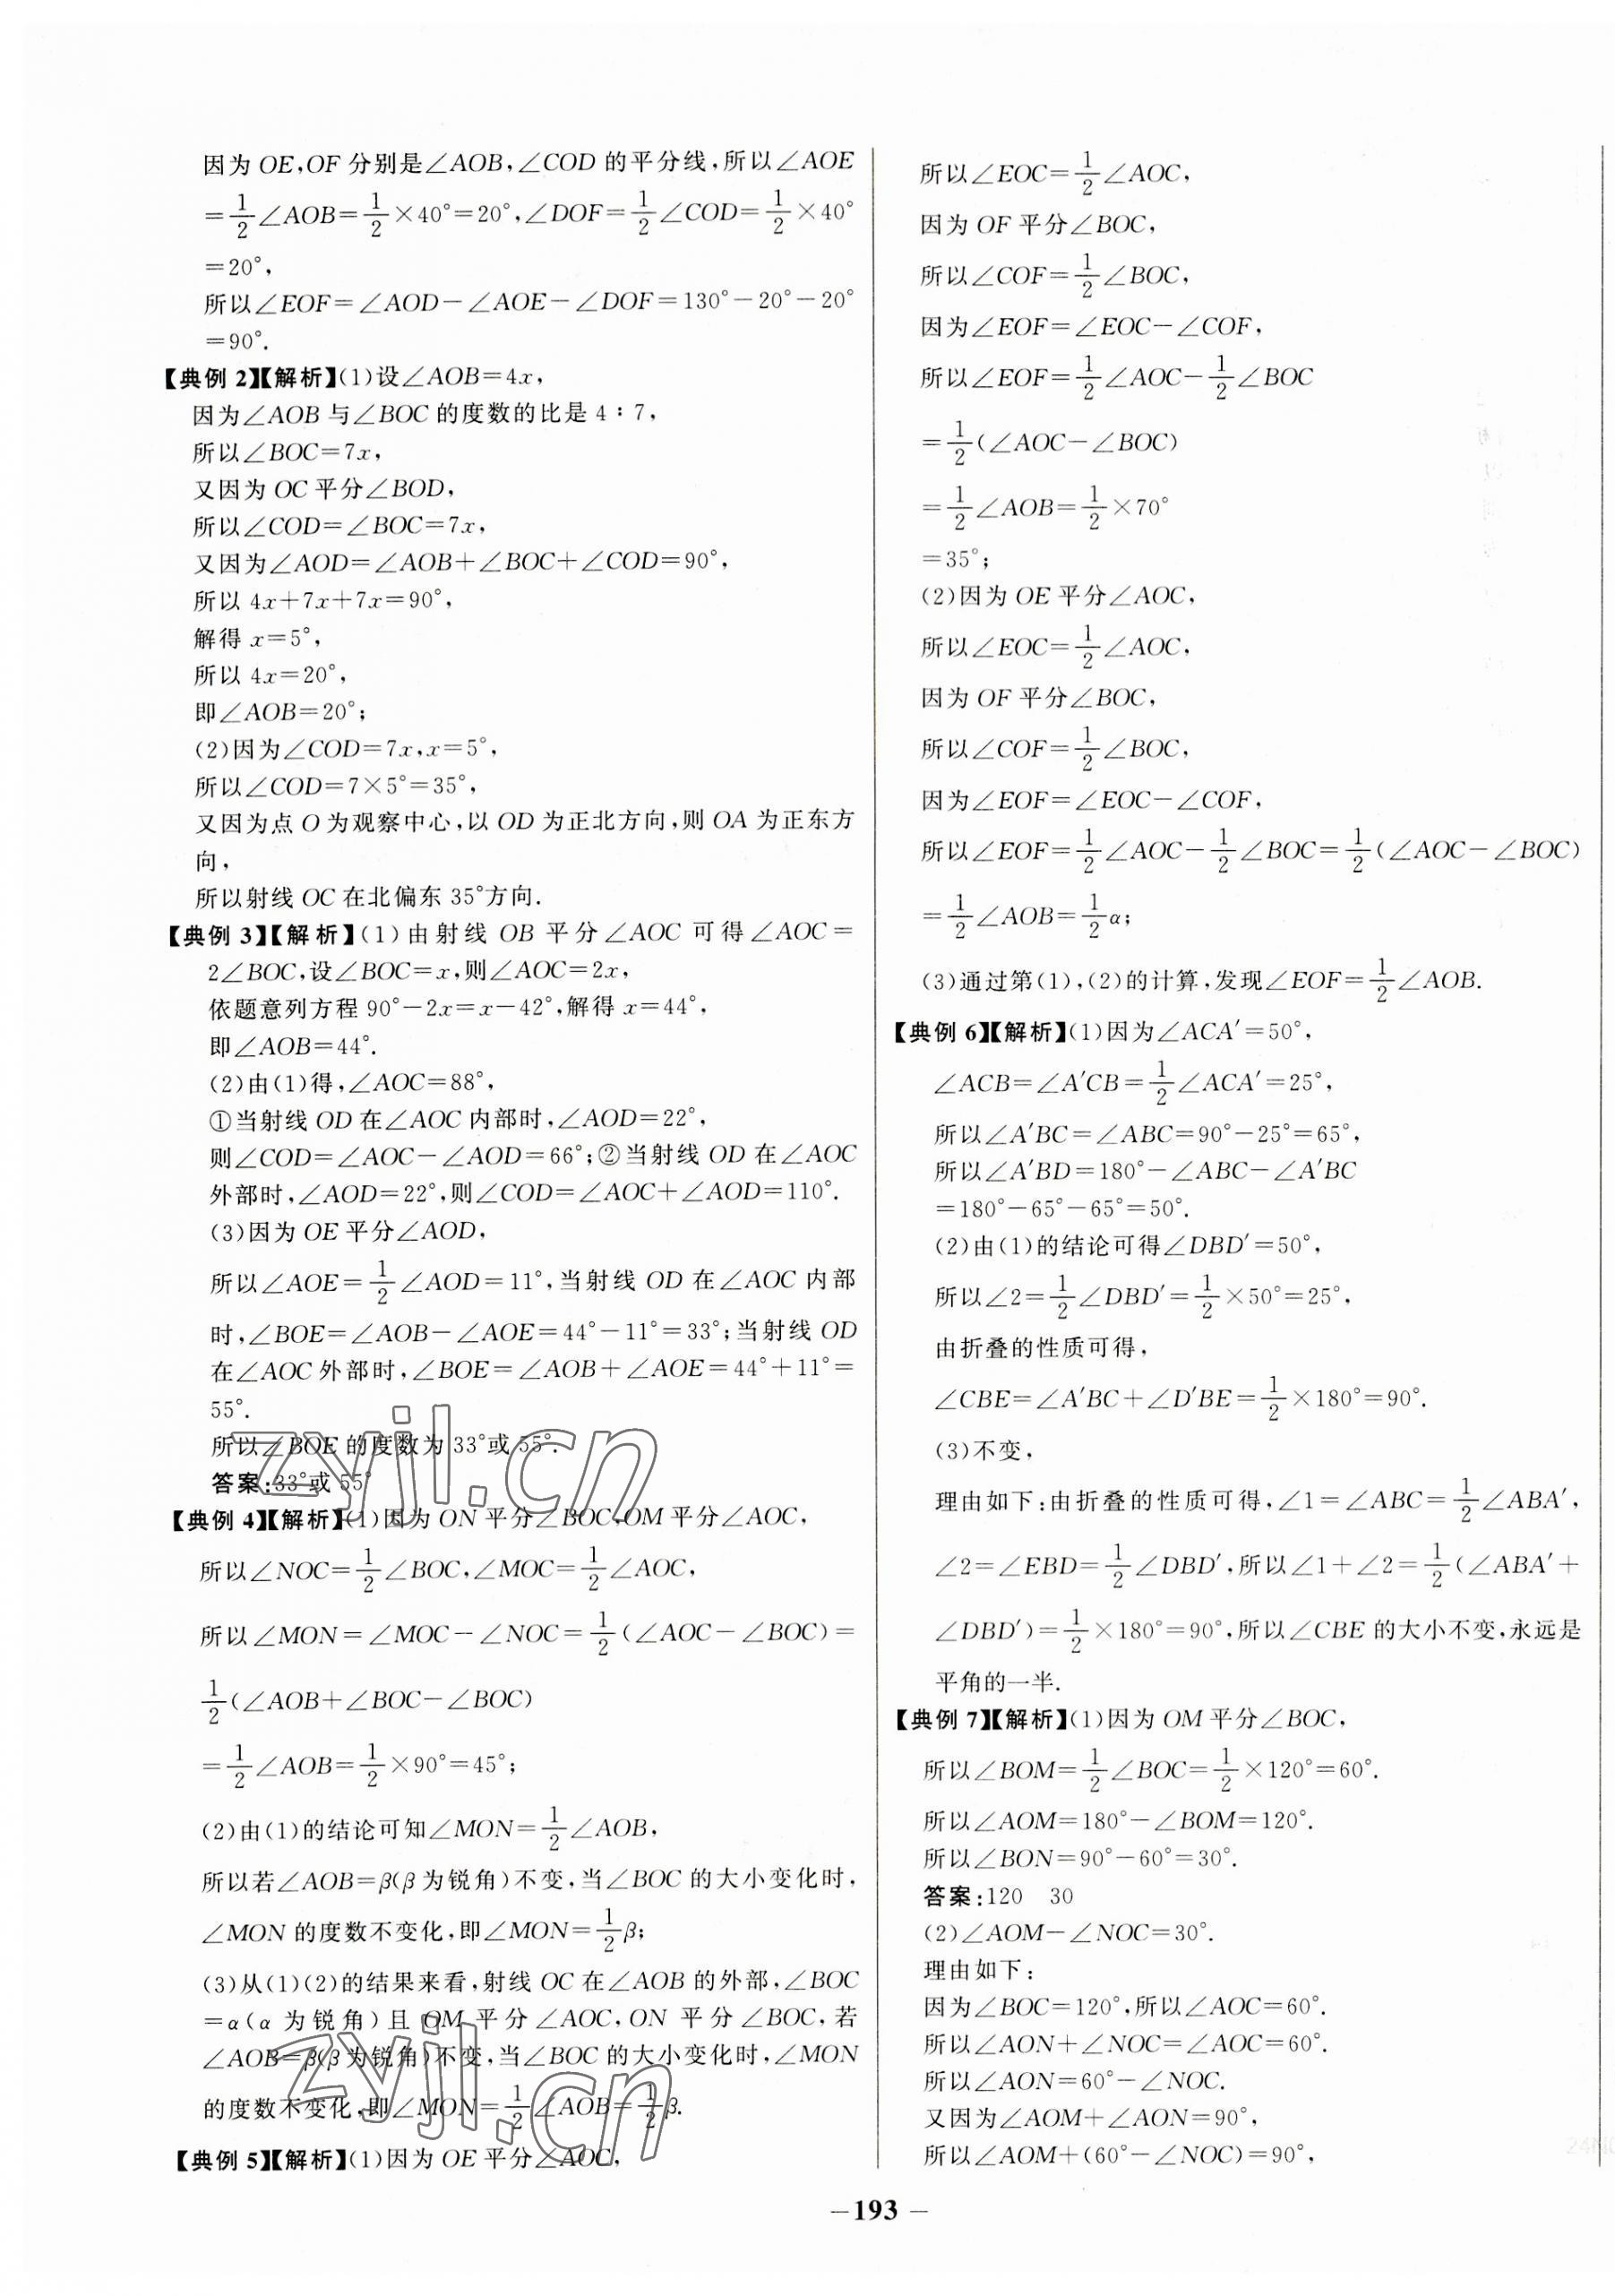 因为 OE,OF 分别是∠AOB,∠COD 的平分线,所以∠AOE
=1/2∠AOB=1/2×40°=20°,∠DOF=1/2∠COD=1/2×40°
=20°,
所以∠EOF=∠AOD-∠AOE-∠DOF=130°-20°-20°
=90°.
【典例 2】【解析】(1)设∠AOB=4x,
因为∠AOB 与∠BOC 的度数的比是 4∶7,
所以∠BOC=7x,
又因为 OC 平分∠BOD,
所以∠COD=∠BOC=7x,
又因为∠AOD=∠AOB+∠BOC+∠COD=90°,
所以 4x+7x+7x=90°,
解得 x=5°,
所以 4x=20°,
即∠AOB=20°;
(2)因为∠COD=7x,x=5°,
所以∠COD=7×5°=35°,
又因为点 O 为观察中心,以 OD 为正北方向,则 OA 为正东方
向,
所以射线 OC 在北偏东 35°方向.
【典例 3】【解析】(1)由射线 OB 平分∠AOC 可得∠AOC=
2∠BOC,设∠BOC=x,则∠AOC=2x,
依题意列方程 90°-2x=x-42°,解得 x=44°,
即∠AOB=44°.
(2)由(1)得,∠AOC=88°,
①当射线 OD 在∠AOC 内部时,∠AOD=22°,
则∠COD=∠AOC-∠AOD=66°;②当射线 OD 在∠AOC
外部时,∠AOD=22°,则∠COD=∠AOC+∠AOD=110°.
(3)因为 OE 平分∠AOD,
所以∠AOE=1/2∠AOD=11°,当射线 OD 在∠AOC 内部
时,∠BOE=∠AOB-∠AOE=44°-11°=33°;当射线 OD
在∠AOC 外部时,∠BOE=∠AOB+∠AOE=44°+11°=
55°.
所以∠BOE 的度数为 33°或 55°.
答案:33°或 55°
【典例 4】【解析】(1)因为 ON 平分∠BOC,OM 平分∠AOC,
所以∠NOC=1/2∠BOC,∠MOC=1/2∠AOC,
所以∠MON=∠MOC-∠NOC=1/2(∠AOC-∠BOC)=
1/2(∠AOB+∠BOC-∠BOC)
=1/2∠AOB=1/2×90°=45°;
(2)由(1)的结论可知∠MON=1/2∠AOB,
所以若∠AOB=β(β为锐角)不变,当∠BOC 的大小变化时,
∠MON 的度数不变化,即∠MON=1/2β;
(3)从(1)(2)的结果来看,射线 OC 在∠AOB 的外部,∠BOC
=α(α 为锐角)且 OM 平分∠AOC,ON 平分∠BOC,若
∠AOB=β(β为锐角)不变,当∠BOC 的大小变化时,∠MON
的度数不变化,即∠MON=1/2∠AOB=1/2β.
【典例 5】【解析】(1)因为 OE 平分∠AOC,
所以∠EOC=1/2∠AOC,
因为 OF 平分∠BOC,
所以∠COF=1/2∠BOC,
因为∠EOF=∠EOC-∠COF,
所以∠EOF=1/2∠AOC-1/2∠BOC
=1/2(∠AOC-∠BOC)
=1/2∠AOB=1/2×70°
=35°;
(2)因为 OE 平分∠AOC,
所以∠EOC=1/2∠AOC,
因为 OF 平分∠BOC,
所以∠COF=1/2∠BOC,
因为∠EOF=∠EOC-∠COF,
所以∠EOF=1/2∠AOC-1/2∠BOC=1/2(∠AOC-∠BOC)
=1/2∠AOB=1/2α;
(3)通过第(1),(2)的计算,发现∠EOF=1/2∠AOB.
【典例 6】【解析】(1)因为∠ACA′=50°,
∠ACB=∠A′CB=1/2∠ACA′=25°,
所以∠A′BC=∠ABC=90°-25°=65°,
所以∠A′BD=180°-∠ABC-∠A′BC
=180°-65°-65°=50°.
(2)由(1)的结论可得∠DBD′=50°,
所以∠2=1/2∠DBD′=1/2×50°=25°,
由折叠的性质可得,
∠CBE=∠A′BC+∠D′BE=1/2×180°=90°.
(3)不变,
理由如下:由折叠的性质可得,∠1=∠ABC=1/2∠ABA′,
∠2=∠EBD=1/2∠DBD′,所以∠1+∠2=1/2(∠ABA′+
∠DBD′)=1/2×180°=90°,所以∠CBE 的大小不变,永远是
平角的一半.
【典例 7】【解析】(1)因为 OM 平分∠BOC,
所以∠BOM=1/2∠BOC=1/2×120°=60°.
所以∠AOM=180°-∠BOM=120°.
所以∠BON=90°-60°=30°.
答案:120 30
(2)∠AOM-∠NOC=30°.
理由如下:
因为∠BOC=120°,所以∠AOC=60°.
所以∠AON+∠NOC=∠AOC=60°.
所以∠AON=60°-∠NOC.
又因为∠AOM+∠AON=90°,
所以∠AOM+(60°-∠NOC)=90°,
-193-
zyjl.cn
zyjl.cn